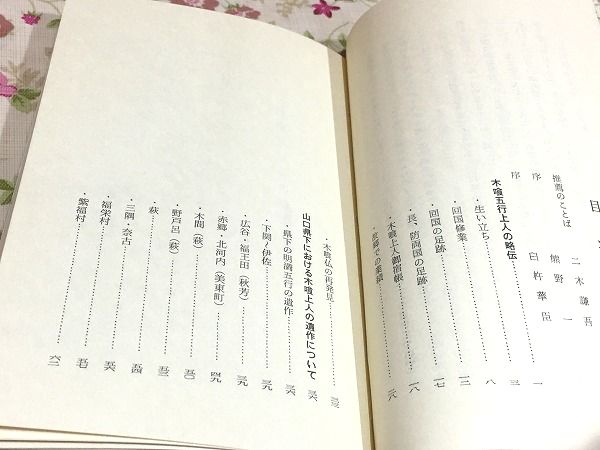 目
推薦のことば 二木謙吾
序 熊野 一
序 臼杵華臣 一
木喰五行上人の略伝 三
・生い立ち 八
・回国修業 一三
・回国の足跡 一七
・長、防両国の足跡 一八
・木喰上人御宿帳 二八
・故郷での業績
・木喰仏の再発見 三三
山口県下における木喰上人の遺作について 三六
・県下の明満五行の遺作 三六
・下関・伊佐 三九
・広谷・福王田(秋芳) 三九
・赤郷・北河内(美東町) 四九
・木間(萩) 五〇
・野戸呂(萩) 五三
・萩 五四
・三隅・奈古 五六
・福栄村 五七
・紫福村 六二